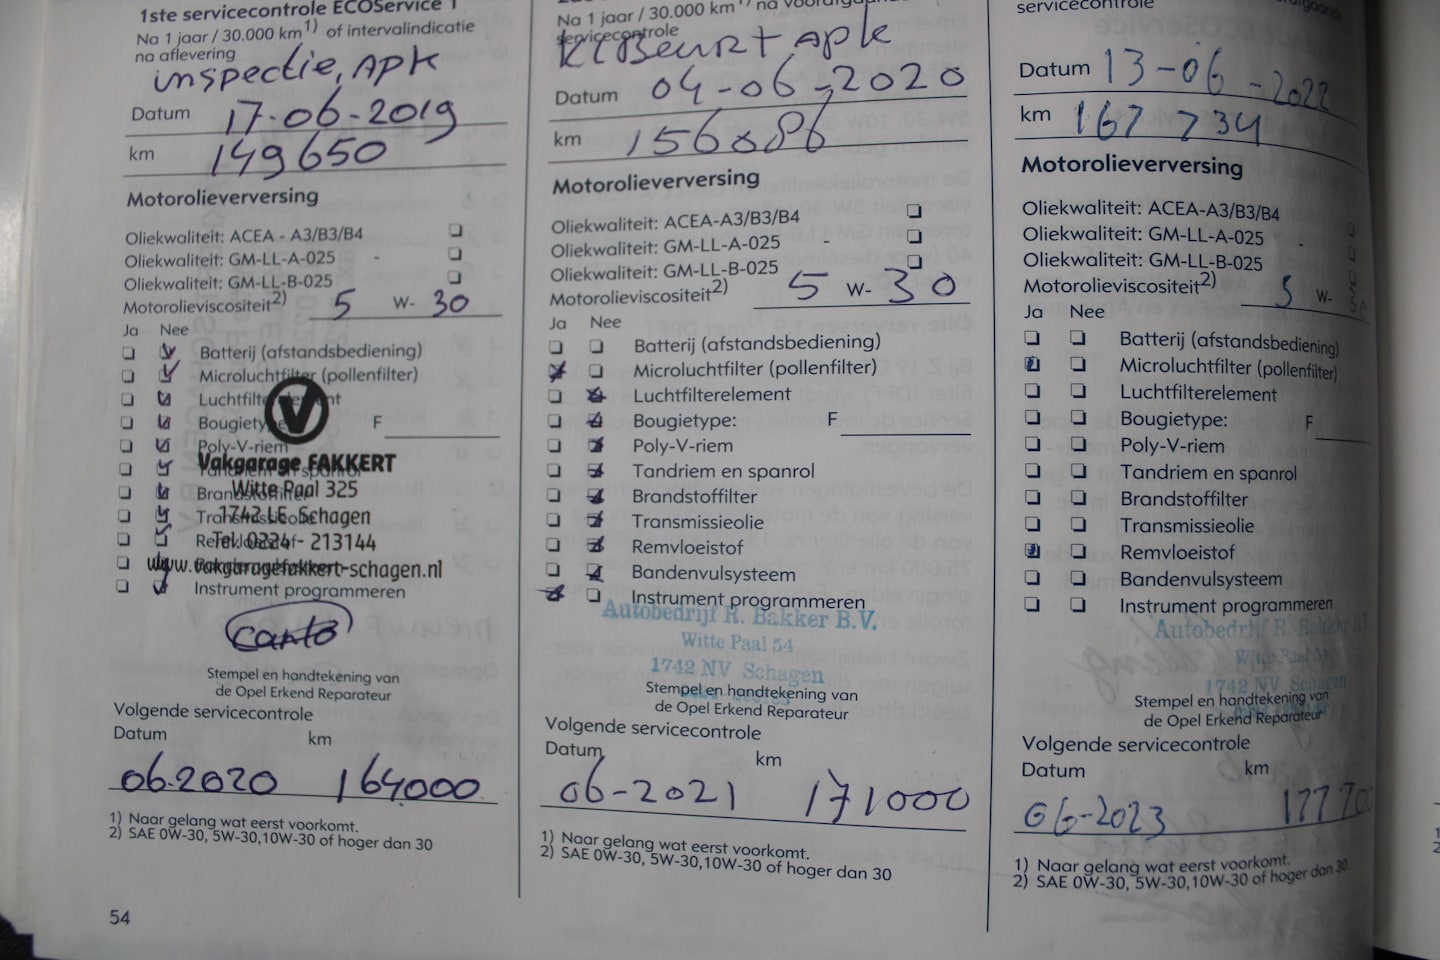 1ste servicecontrole ECOService 1
Na 1 jaar / 30.000 km1) of intervalindicatie
na aflevering
inspectie, APK
Datum 17-06-2019
km 149650
Motorolieverversing
Oliekwaliteit: ACEA - A3/B3/B4
Oliekwaliteit: GM-LL-A-025 -
Oliekwaliteit: GM-LL-B-025
Motorolieviscositeit2) 5 W- 30
Ja Nee
Batterij (afstandsbediening)
Microluchtfilter (pollenfilter)
Luchtfilterelement
Bougietype: F
Poly-V-riem
Tandriem en spanrol
Brandstoffilter
Transmissieolie
Remvloeistof
Instrument programmeren
V
Vakgarage FAKKERT
Witte Paal 325
1742 LE Schagen
Tel. 0224 - 213144
www.vakgaragefakkert-schagen.nl
Stempel en handtekening van
de Opel Erkend Reparateur
Volgende servicecontrole
Datum km
06-2020 164000
1) Naar gelang wat eerst voorkomt.
2) SAE 0W-30, 5W-30,10W-30 of hoger dan 30
54
Na 1 jaar / 30.000 km1) na
servicecontrole
Kl Beurt + apk
Datum 04-06-2020
km 156086
Motorolieverversing
Oliekwaliteit: ACEA-A3/B3/B4
Oliekwaliteit: GM-LL-A-025 -
Oliekwaliteit: GM-LL-B-025
Motorolieviscositeit2) 5 W- 30
Ja Nee
Batterij (afstandsbediening)
Microluchtfilter (pollenfilter)
Luchtfilterelement
Bougietype: F
Poly-V-riem
Tandriem en spanrol
Brandstoffilter
Transmissieolie
Remvloeistof
Bandenvulsysteem
Instrument programmeren
Autobedrijf R. Bakker B.V.
Witte Paal 54
1742 NV Schagen
Stempel en handtekening van
de Opel Erkend Reparateur
Volgende servicecontrole
Datum km
06-2021 171000
1) Naar gelang wat eerst voorkomt.
2) SAE 0W-30, 5W-30,10W-30 of hoger dan 30
servicecontrole
Datum 13-06-2022
km 167 734
Motorolieverversing
Oliekwaliteit: ACEA-A3/B3/B4
Oliekwaliteit: GM-LL-A-025 -
Oliekwaliteit: GM-LL-B-025
Motorolieviscositeit2) 5 W- 30
Ja Nee
Batterij (afstandsbediening)
Microluchtfilter (pollenfilter)
Luchtfilterelement
Bougietype: F
Poly-V-riem
Tandriem en spanrol
Brandstoffilter
Transmissieolie
Remvloeistof
Bandenvulsysteem
Instrument programmeren
Autobedrijf R. Bakker
1742 NV Schagen
Stempel en handtekening van
de Opel Erkend Reparateur
Volgende servicecontrole
Datum km
06-2023
1) Naar gelang wat eerst voorkomt.
2) SAE 0W-30, 5W-30,10W-30 of hoger dan 30